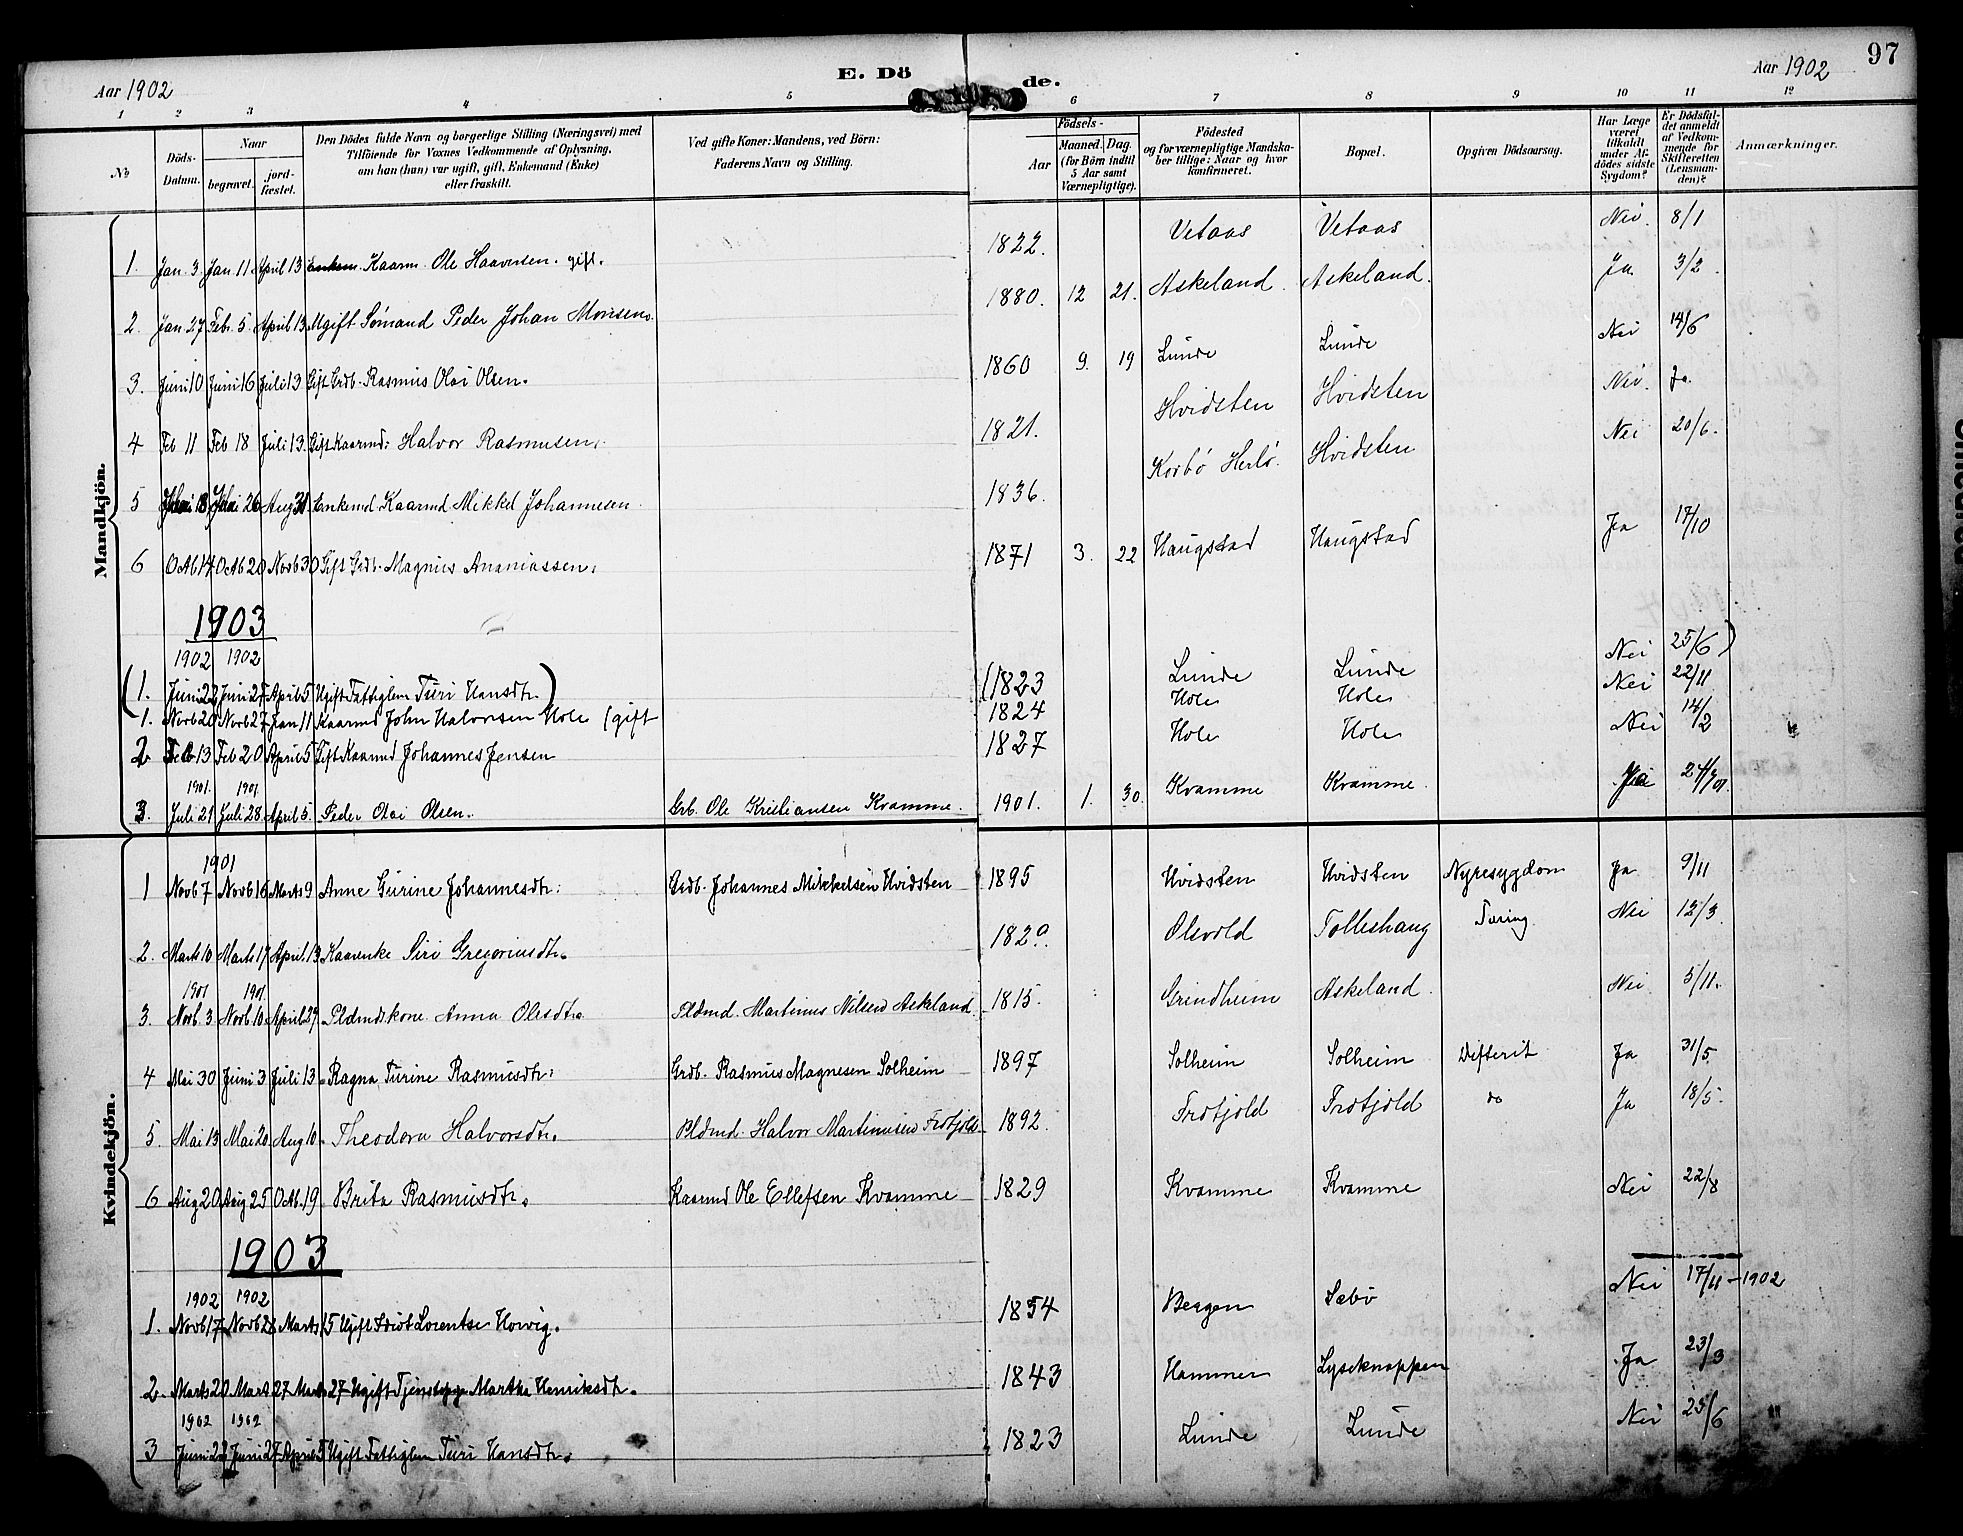 Aar 1902 E. Dö de. Aar 1902 97
1 2 3 4 5 6 7 8 9 10 11 12
No
Döds-Datum.
Naar
begravet.
jord-fæstet.
Den Dödes fulde Navn og borgerlige Stilling (Næringsvei) med
Tilföiende for Voxnes Vedkommende af Oplysning,
om han (hun) var ugift, gift, Enkemand (Enke)
eller fraskilt.
Ved gifte Koner: Mandens, ved Börn:
Faderens Navn og Stilling.
Födsels-
Aar
Maaned. Dag.
(for Börn indtil
5 Aar samt
Værnepligtige).
Födested
og for værnepligtige Mandska-
ber tillige: Naar og hvor
konfirmeret.
Bopæl.
Opgiven Dödsaarsag.
Har Læge
været
tilkaldt
under Af-
dödes sidste
Sygdom?
Er Dödsfal-
det anmeldt
af Vedkom-
mende for
Skifteretten
(Lensman-
den)?
Anmærkninger.
Mandkjön.
1. Jan. 3. Jan. 11 April 13 Kaarm. Ole Haaversen. gift. 1822. Vetaas Vetaas Nei. 8/1
2. Jan 27 Febr. 5. April 13 Ugift Sømand Peder Johan Monsen. 1880. 12 21. Askeland. Askeland. Ja 3/2.
3. Juni 10 Juni 16 Juli 13 Gift Grdb. Rasmus Olai Olsen. 1860 9. 19 Lunde Lunde Nei 14/6
4 Feb 11 Feb 18 Juli 13. Gift Kaarmd: Halvor Rasmusen. 1821. Hvidsten Hvidsten Nei. Ja.
5 18 26 Aug 31 Enkemd Kaarmd Mikkel Johannesen 1836. Herlø. Hvidsten Nei 20/6.
6 Octb 14 Octb 20 Novb 30 Gift Grdb. Magnus Ananiassen. 1871 3. 22 Haugstad Haugstad Ja 17/10
1903
1902 1902
(1. Juni 22 Juni 27 April 5 Ugift Fattiglem Turi Hansdtr.) (1823 Lunde Lunde Nei 25/6)
1. Novb 20 Novb 27 Jan 11 Kaarmd John Halvorsen Hole (gift 1824 Hole Hole Nei 22/11
2 Feb 13 Feb 20 April 5 Gift Kaarmd Johannes Jensen 1827 Hole Hole Nei 14/2
1901. 1901.
3. Juli 21 Juli 28 April 5. Peder Olai Olsen. Grb. Ole Kristiansen Kvamme. 1901. 1. 30. Kvamme Kvamme. Ja
Kvindekjön.
1901
1 Novb 7 Novb 16 Marts 9 Anne Gurine Johannesdtr. Grdb. Johannes Mikkelsen Hvidsten 1895 Hvidsten Hvidsten Nyresygdom Ja 9/11
2. Marts 10 Marts 17 April 13 Kaarenke Siri Gregoriusdtr. 1820. Olsvold Tolleshaug Tæring Nei 12/3.
1901 1901.
3. Novb. 3 Novb 10 April 27 Pldmdskone Anna Olesdtr. Pldmd. Martinus Nilsen Askeland 1815. Grindheim Askeland. Nei 5/11.
4 Mai 30 Juni 3 Juli 13. Ragna Turine Rasmusdtr. Grdb. Rasmus Magnesen Solheim 1897 Solheim Solheim Difterit Ja 31/5
5. Mai 13 Mai 20 Aug 10. Theodora Halvorsdtr. Pldmd. Halvor Martinusen Frotjold 1892. Frotjold Frotjold do Ja 18/5.
6 Aug 20 Aug 25 Octb. 19 Brita Rasmusdtr. Kaarmd Ole Ellefsen Kvamme 1829 Kvamme Kvamme Nei 22/8
1903
1902 1902
1. Novb 17 Novb 28 Marts 15 Ugift Idiot Lorentse Horvig. 1854 Bergen Sæbø Nei 17/11 - 1902
2. Marts 20 Marts 27 Marts 27 Ugift Martha Henriksdtr. 1843 Hammer Lyseknappen Ja 23/3
1902 1902
3 Juni 22 Juni 27 April 5 Ugift Fattiglem Turi Hansdtr. 1823 Lunde Lunde Nei 25/6